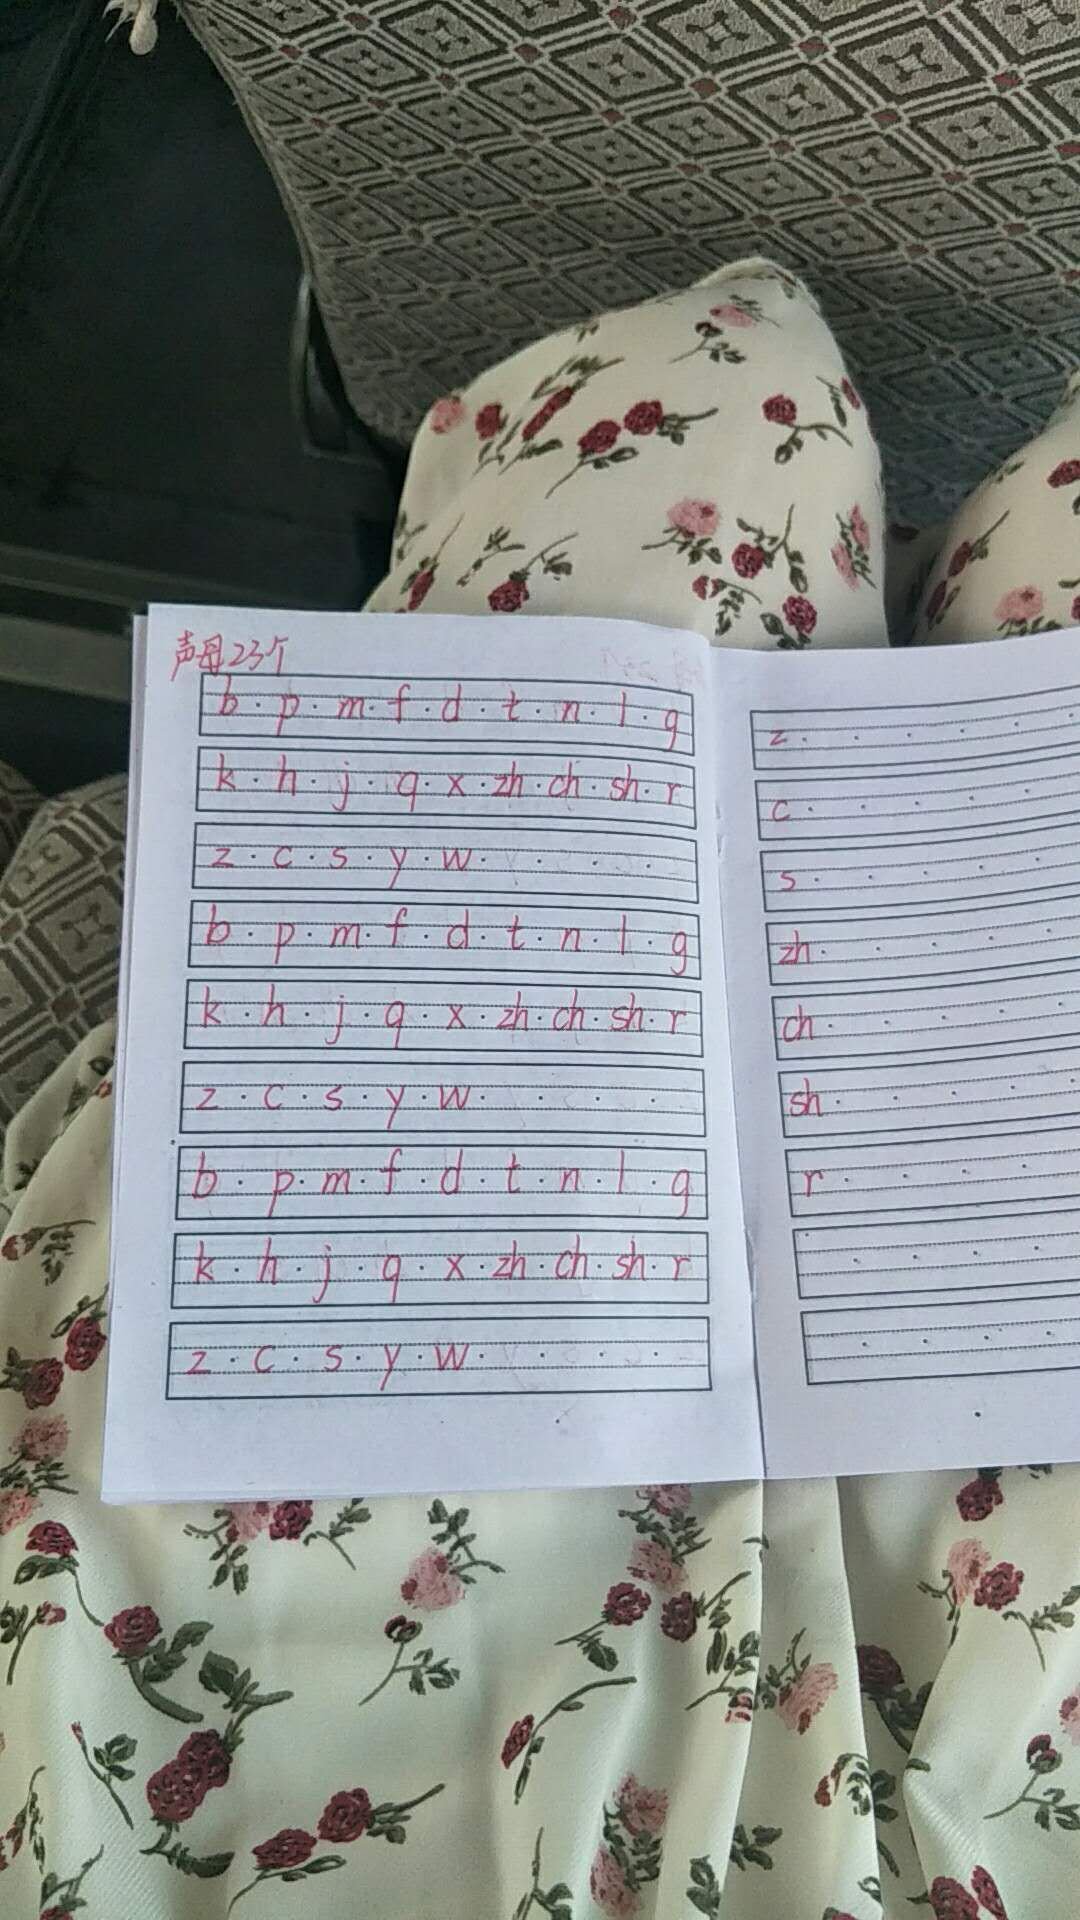 声母23个
b p m f d t n l g
k h j q x zh ch sh r
z c s y w
b p m f d t n l g
k h j q x zh ch sh r
z c s y w
b p m f d t n l g
k h j q x zh ch sh r
z c s y w
z
c
s
zh
ch
sh
r